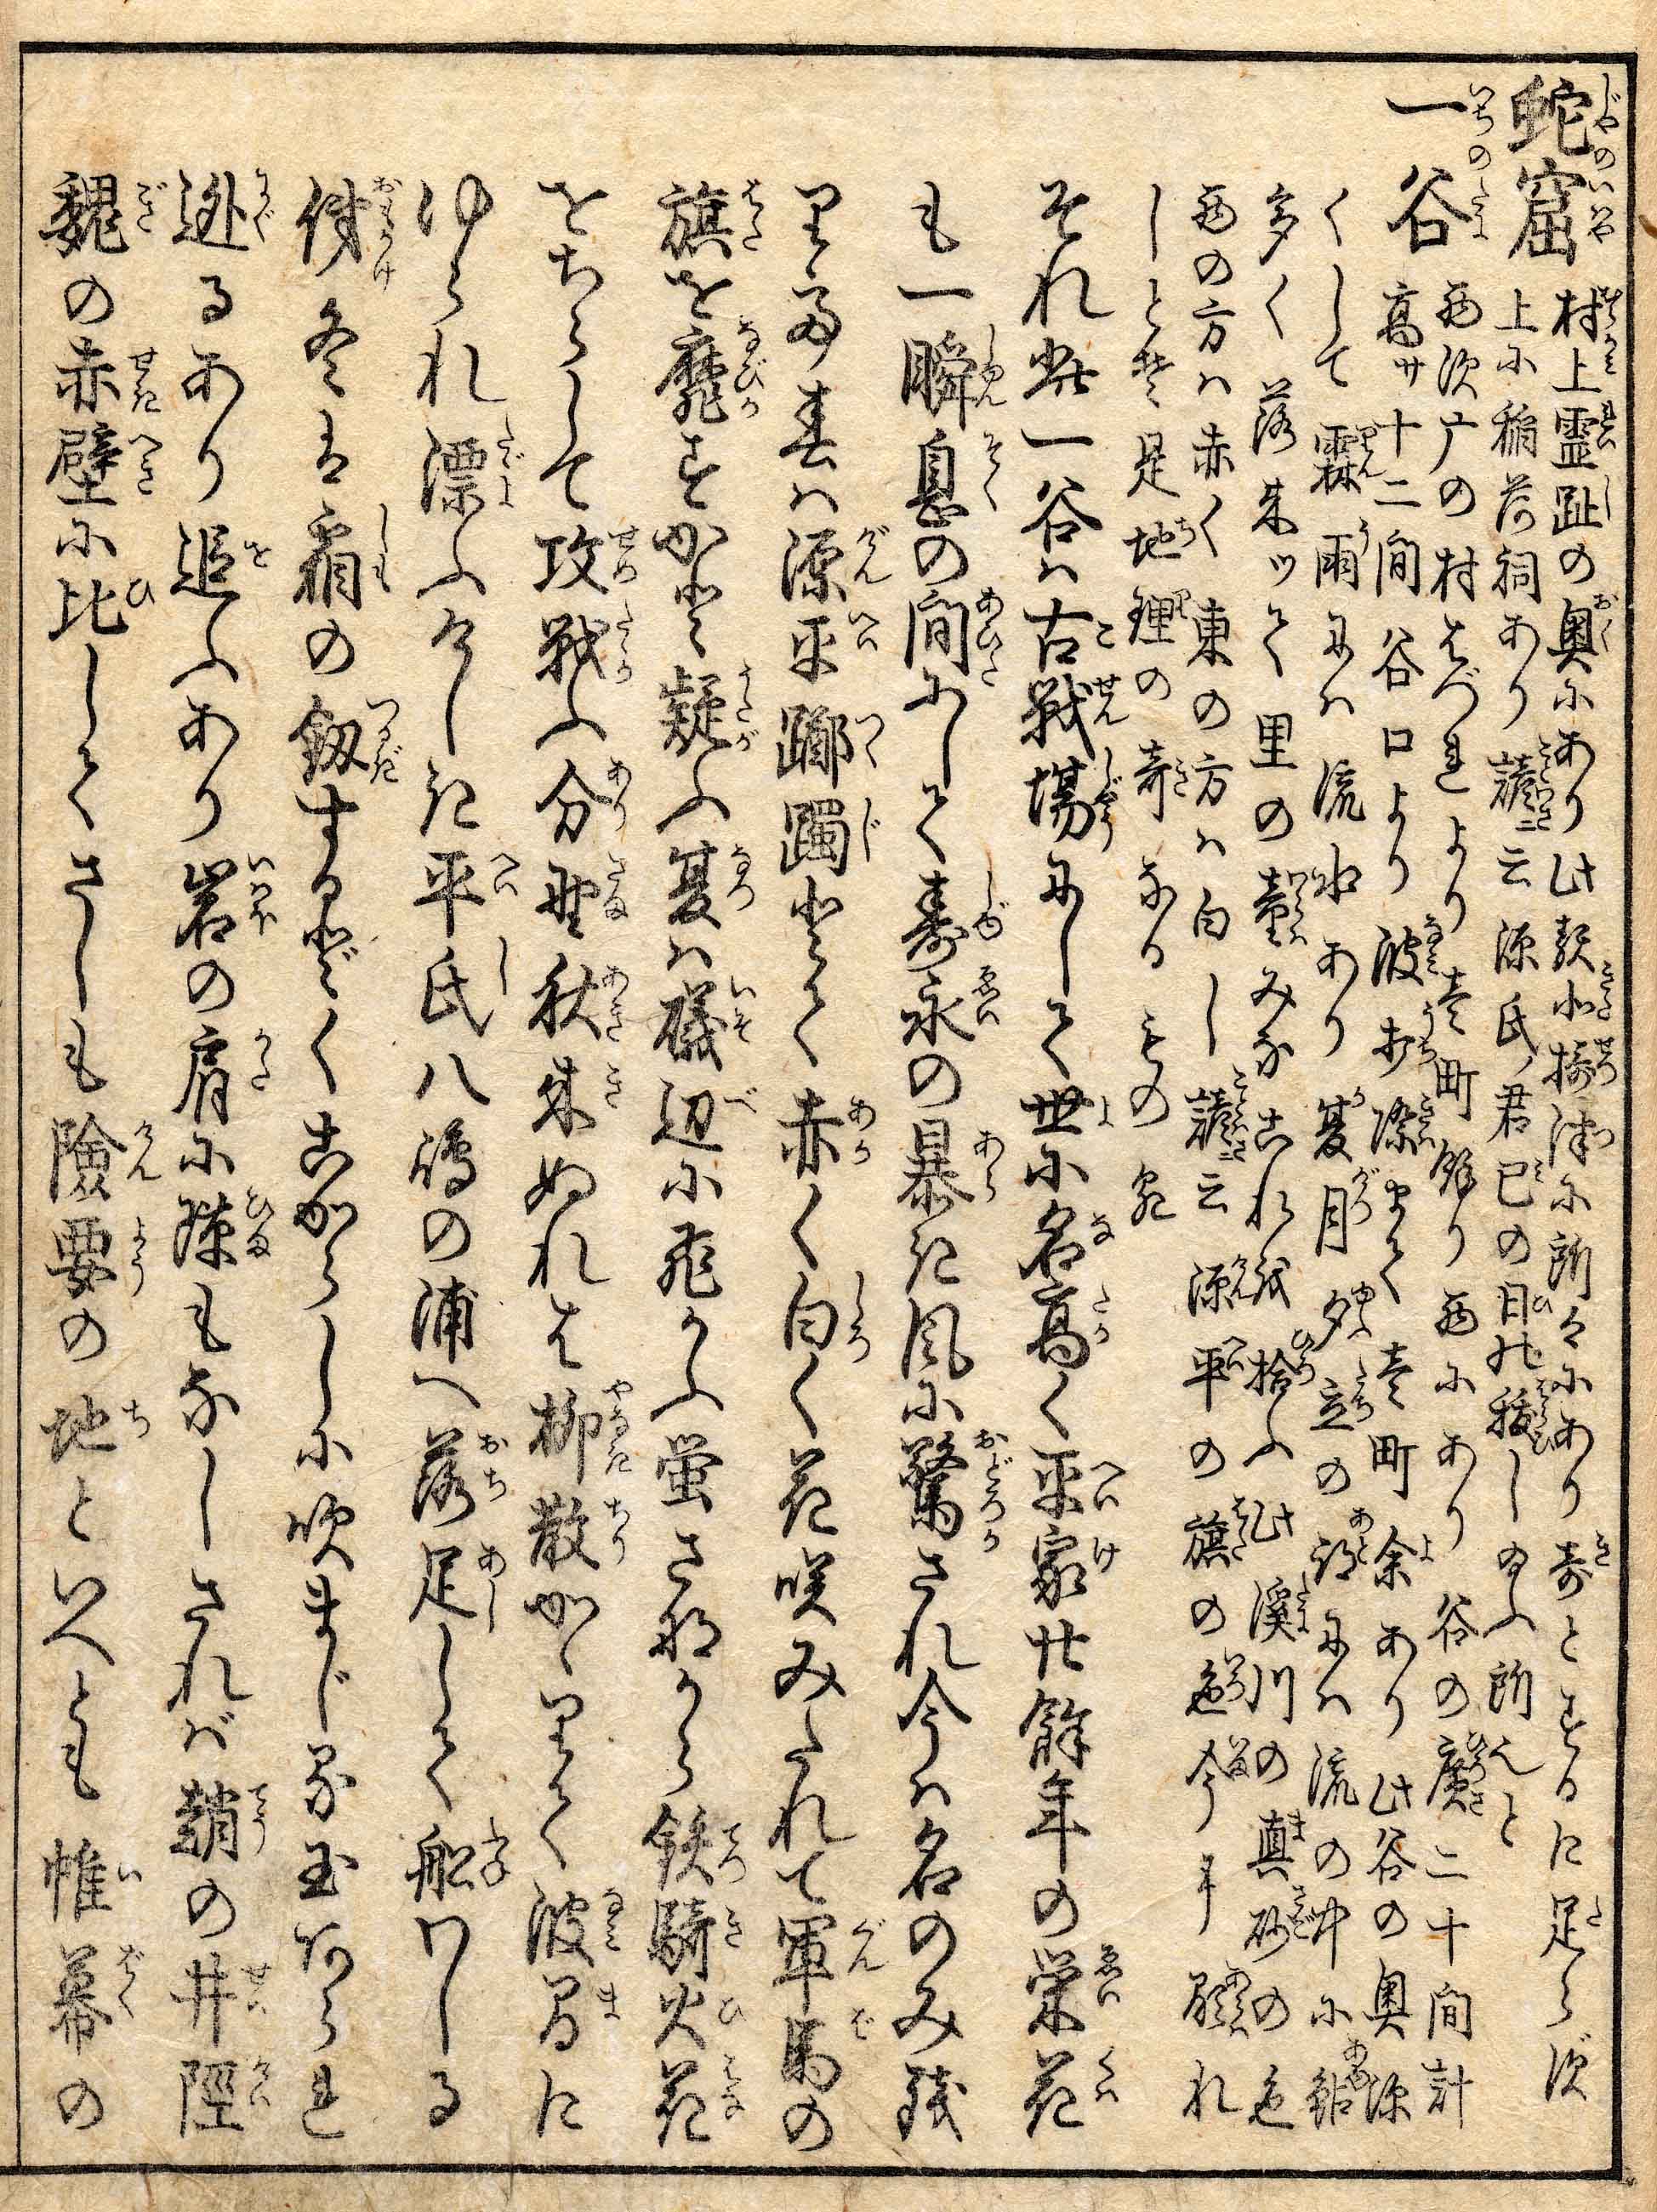 蛇窟 村上霊趾の奥にあり此類北摂津に所々にあり奇とするに足らず
上に稲荷祠あり諺ニ云源氏ノ君巳の日の祓し給ふ所んと
一谷 西須广の村はづれより壱町餘り西にあり谷の廣二十間計
高サ十二間谷口より波打際まで壱町余あり此谷の奥深
くして霖雨には流水あり夏月夕立の跡には流の中に鉛
多く落来ッて里の童みなこれを拾ふ此溪川の真砂の色
西の方ハ赤く東の方ハ白し諺ニ云源平の旗の色今に顕れ
しとぞ是地理の奇なるもの歟
それ此一谷ハ古戦場にして世に名高く平家廿餘年の栄花
も一瞬息の間にして寿永の暴き風に驚され今ハ名のみ残
りて春ハ源平躑躅とて赤く白く花咲みだれて軍馬の
旗を靡すかと疑ふ夏ハ礒辺に飛かふ蛍さながら鉄騎火花
をちらして攻戦ふ分野秋来ぬれは柳散かゝりて波間に
ゆられ漂ふけしき平氏八嶋の浦へ落足して船ワしる
俤冬は霜の釼するどくこがらしに吹まじる玉あられ
迯るあり追ふあり岩の肩に隙もなしされバ趙の井陘
魏の赤壁に比してさしも險要の地といへとも帷幕の